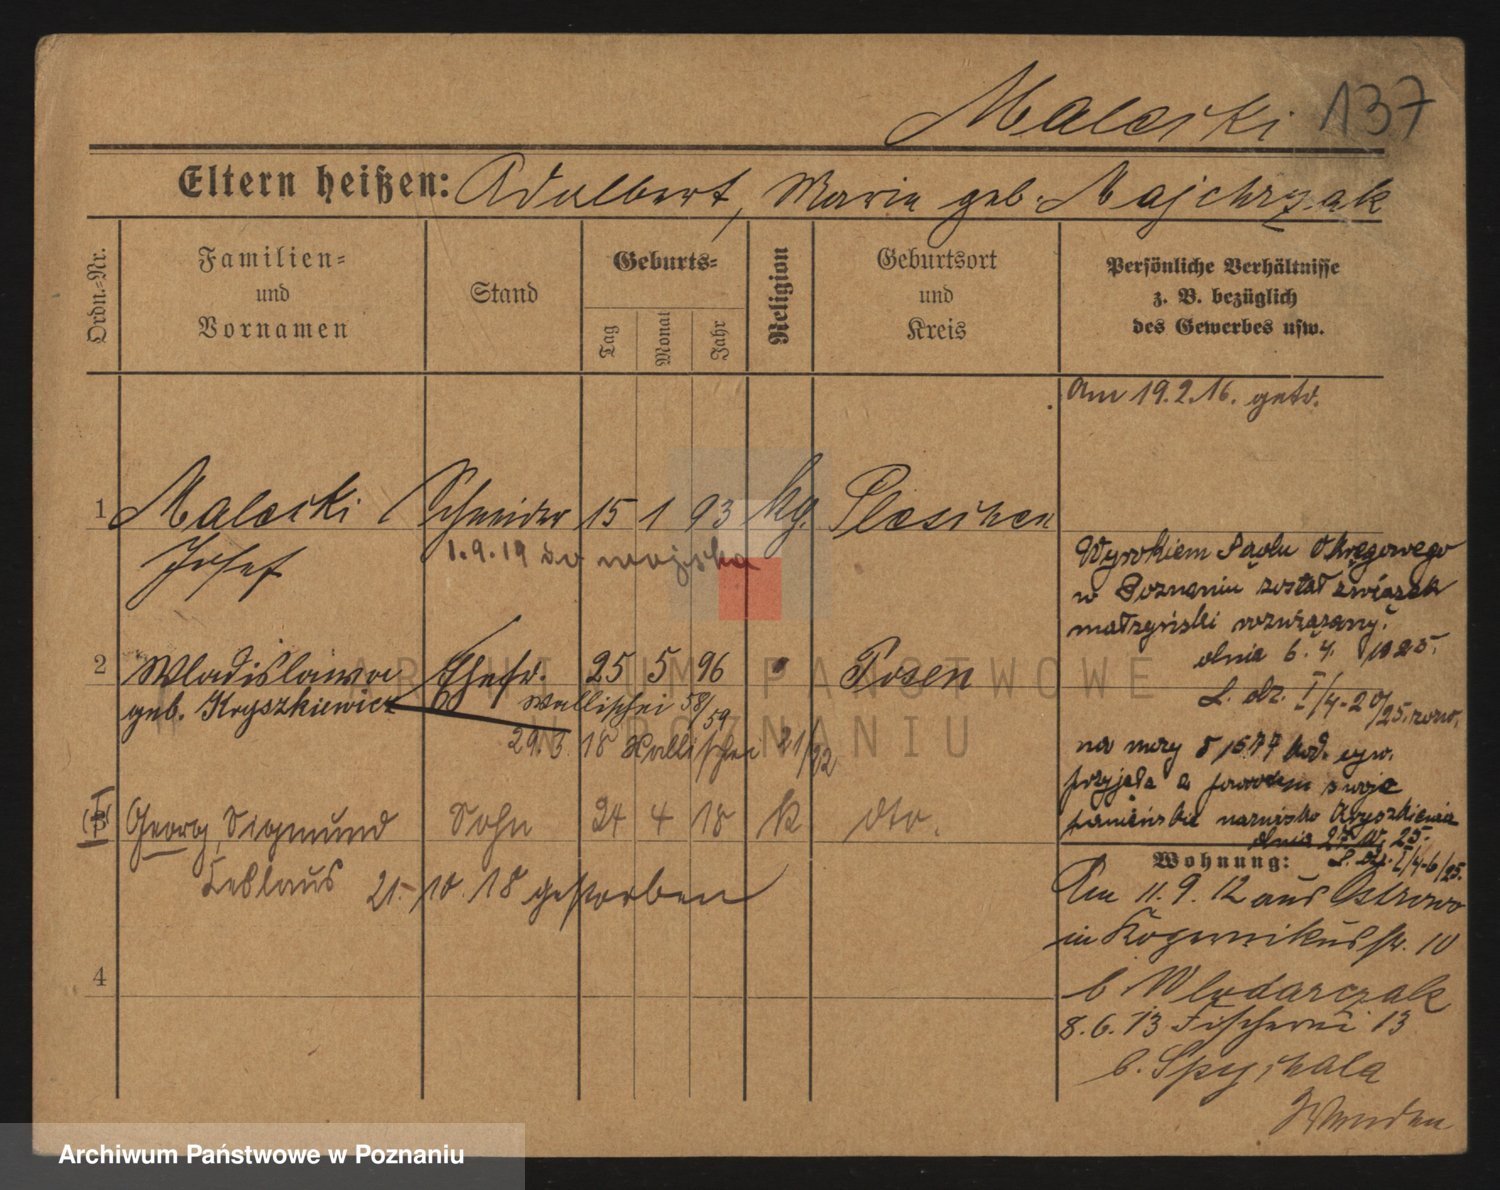 Maleski 137
Eltern heißen: Adalbert, Maria geb. Majchrzak
Ordn.-Nr.
Familien-
und
Vornamen
Stand
Geburts-
Tag
Monat
Jahr
Religion
Geburtsort
und
Kreis
Persönliche Verhältnisse
z. B. bezüglich
des Gewerbes usw.
Am 19.2.16. getr.
1 Maleski Schneider 15 1 93 kg. Pleschen
Josef 1.9.19 do wojska
Wyrokiem Sądu Okręgowego
w Poznaniu został związek
małżeński rozwiązany.
dnia 6.4. 1925.
2 Wladislawa Ehefr. 25 5 96 " Posen
geb. Kryszkiewicz Wallischei 58/59
29.3. 18 Wallischei 21/22
L. dz. I/4-20/25.
na mocy § 1577 kod. cyw.
przyjęła z powrotem swoje
panieńskie nazwisko Kryszkiewicz
dnia 25. IV. 25.
L. dz. I/4-6/25.
3 Georg, Sigmund Sohn 24 4 18 k dto.
Ceslaus 21. 10. 18 gestorben
Wohnung:
Am 11.9.12 aus Ostrowo
in Kopernikusstr. 10
b Wlodarczak
8.6.13 Fischerei 13
b. Spychala
4
Wenden
ARCHIWUM PAŃSTWOWE
W POZNANIU
Archiwum Państwowe w Poznaniu